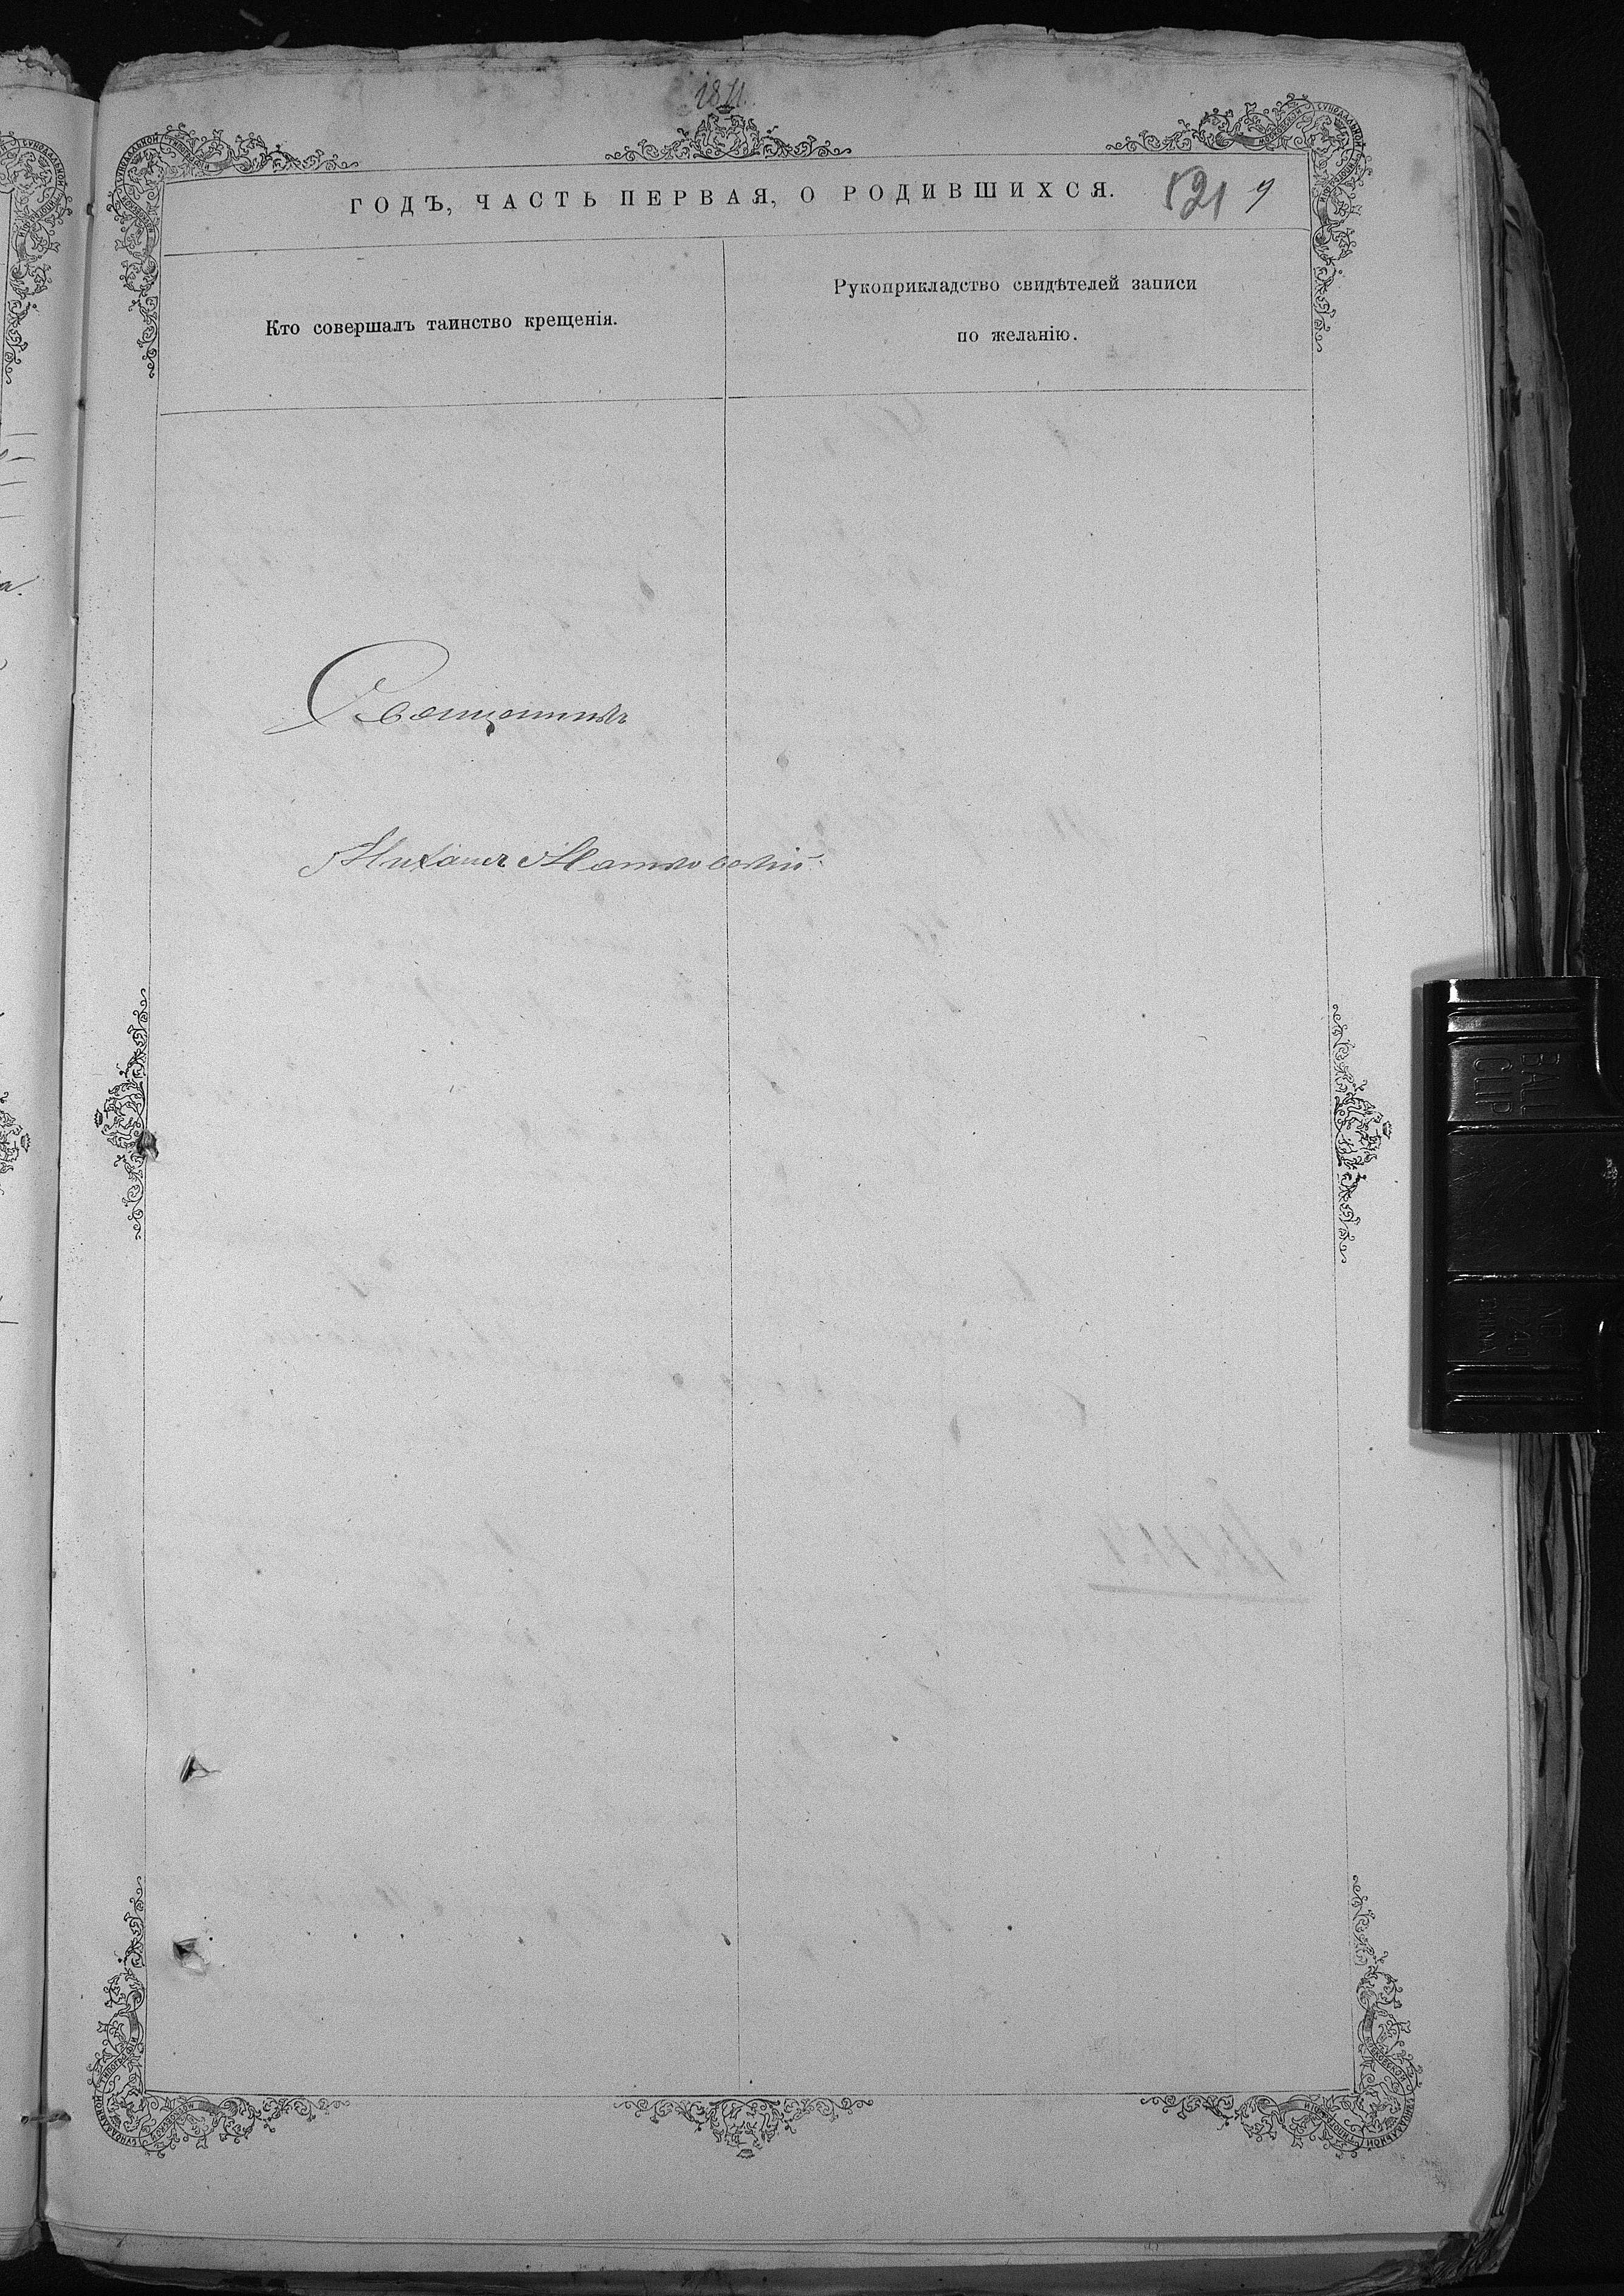 ГОДЪ, ЧАСТЬ ПЕРВАЯ, О РОДИВШИХСЯ.
521 9
Кто совершалъ таинство крещенія.
Рукоприкладство свидѣтелей записи
по желанію.
Священникъ
Михаилъ Матковскій
BALL
CLIP